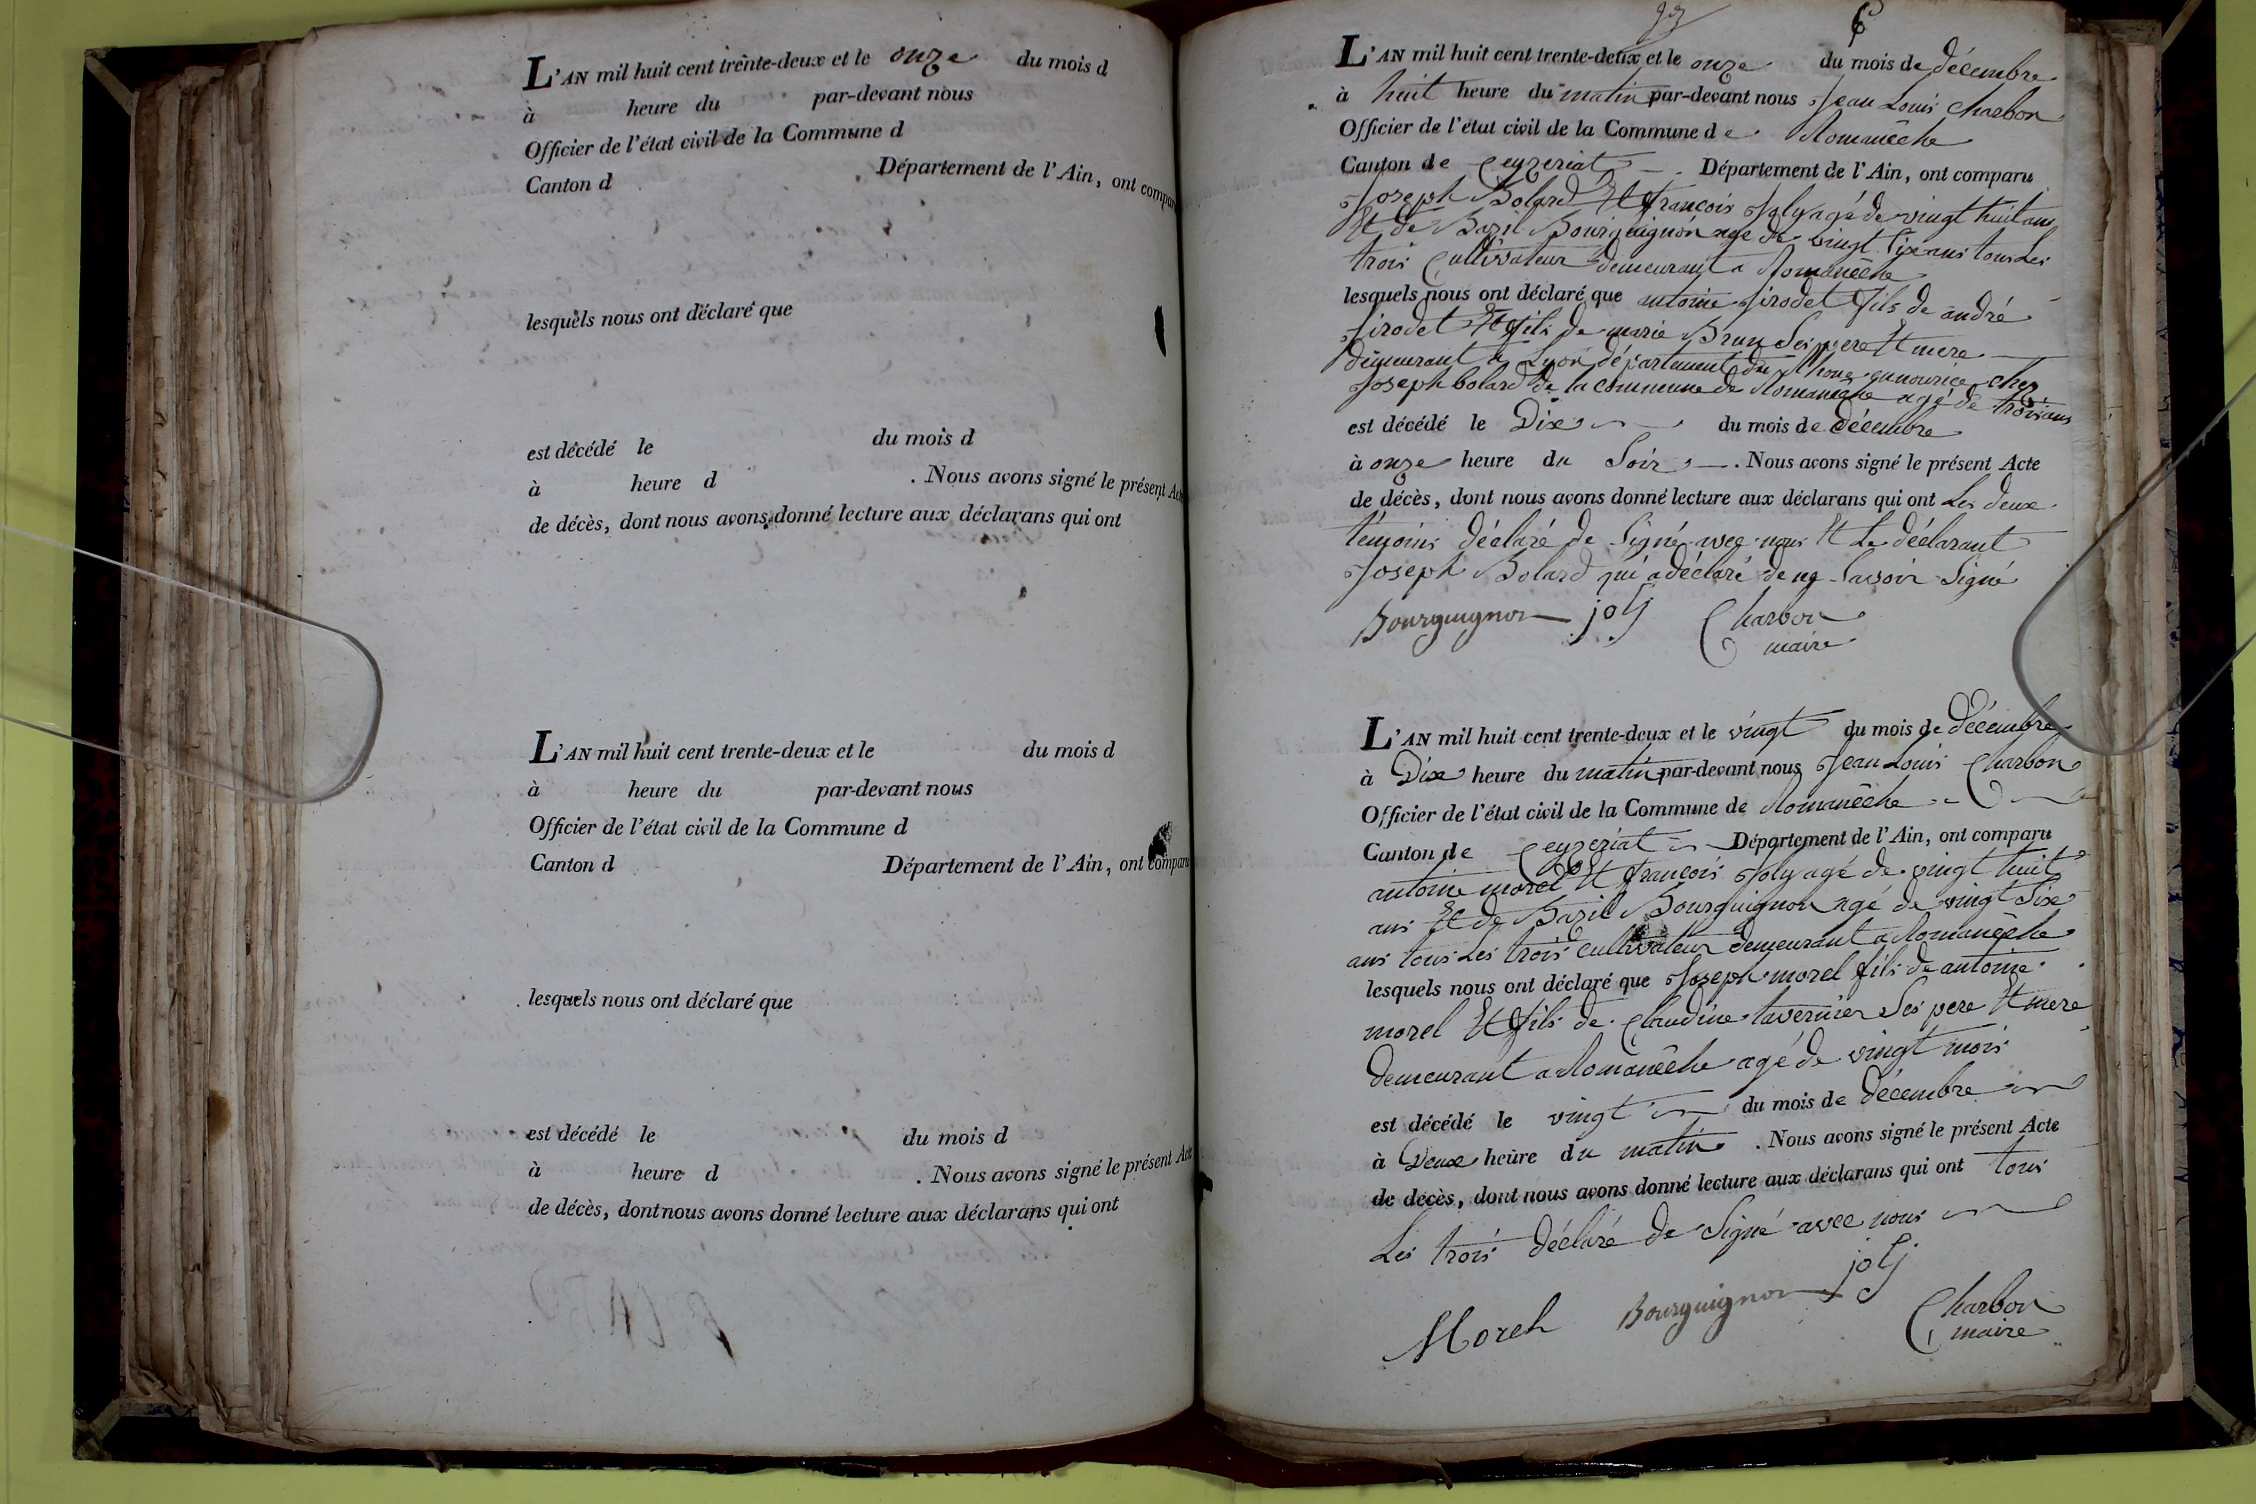 L'AN mil huit cent trente-deux et le onze du mois d
à heure du par-devant nous
Officier de l'état civil de la Commune d
Canton d Département de l'Ain, ont comparu
lesquels nous ont déclaré que
est décédé le du mois d
à heure d . Nous avons signé le présent Acte
de décès, dont nous avons donné lecture aux déclarans qui ont
L'AN mil huit cent trente-deux et le du mois d
à heure du par-devant nous
Officier de l'état civil de la Commune d
Canton d Département de l'Ain, ont comparu
lesquels nous ont déclaré que
est décédé le du mois d
à heure d . Nous avons signé le présent Acte
de décès, dont nous avons donné lecture aux déclarans qui ont
6
L'AN mil huit cent trente-deux et le onze du mois de décembre
à huit heure du matin par-devant nous Jean Louis Charbon
Officier de l'état civil de la Commune de Romanêche
Canton de Ceyzeriat Département de l'Ain, ont comparu
Joseph Bolard Et françois Joly agé de vingt huit ans
Et de Bazil Bourguignon age de vingt Six ans tous Les
trois Cultivateur demeurant a Romanêche
lesquels nous ont déclaré que antoine Girodet fils de andré
Girodet Et fils de marie Brun Ses pere Et mere
demeurant a Lyon département du Rhone en nourice chez
Joseph bolard de la commune de Romanêche agé de trois ans
est décédé le Dix du mois de décembre
à onze heure du Soir . Nous avons signé le présent Acte
de décès, dont nous avons donné lecture aux déclarans qui ont Les deux
témoins déclaré de Signé avec nous Et Le déclarant
Joseph Bolard qui a déclaré de ne Savoir Signé
Bourguignon joly Charbon
maire
L'AN mil huit cent trente-deux et le vingt du mois de décembre
à Dix heure du matin par-devant nous Jean Louis Charbon
Officier de l'état civil de la Commune de Romanêche
Canton de Ceyzeriat Département de l'Ain, ont comparu
antoine morel Et françois Joly agé de vingt huit
ans Et de Bazil Bourguignon agé de vingt Six
ans tous Les trois cultivateur demeurant a Romanêche
lesquels nous ont déclaré que Joseph morel fils de antoine
morel Et fils de Claudine tavernier Ses pere Et mere
demeurant a Romanêche agé de vingt mois
est décédé le vingt du mois de décembre
à Deux heure du matin . Nous avons signé le présent Acte
de décès, dont nous avons donné lecture aux déclarans qui ont tous
Les trois déclaré de Signé avec nous
Morel Bourguignon joly
Charbon
maire